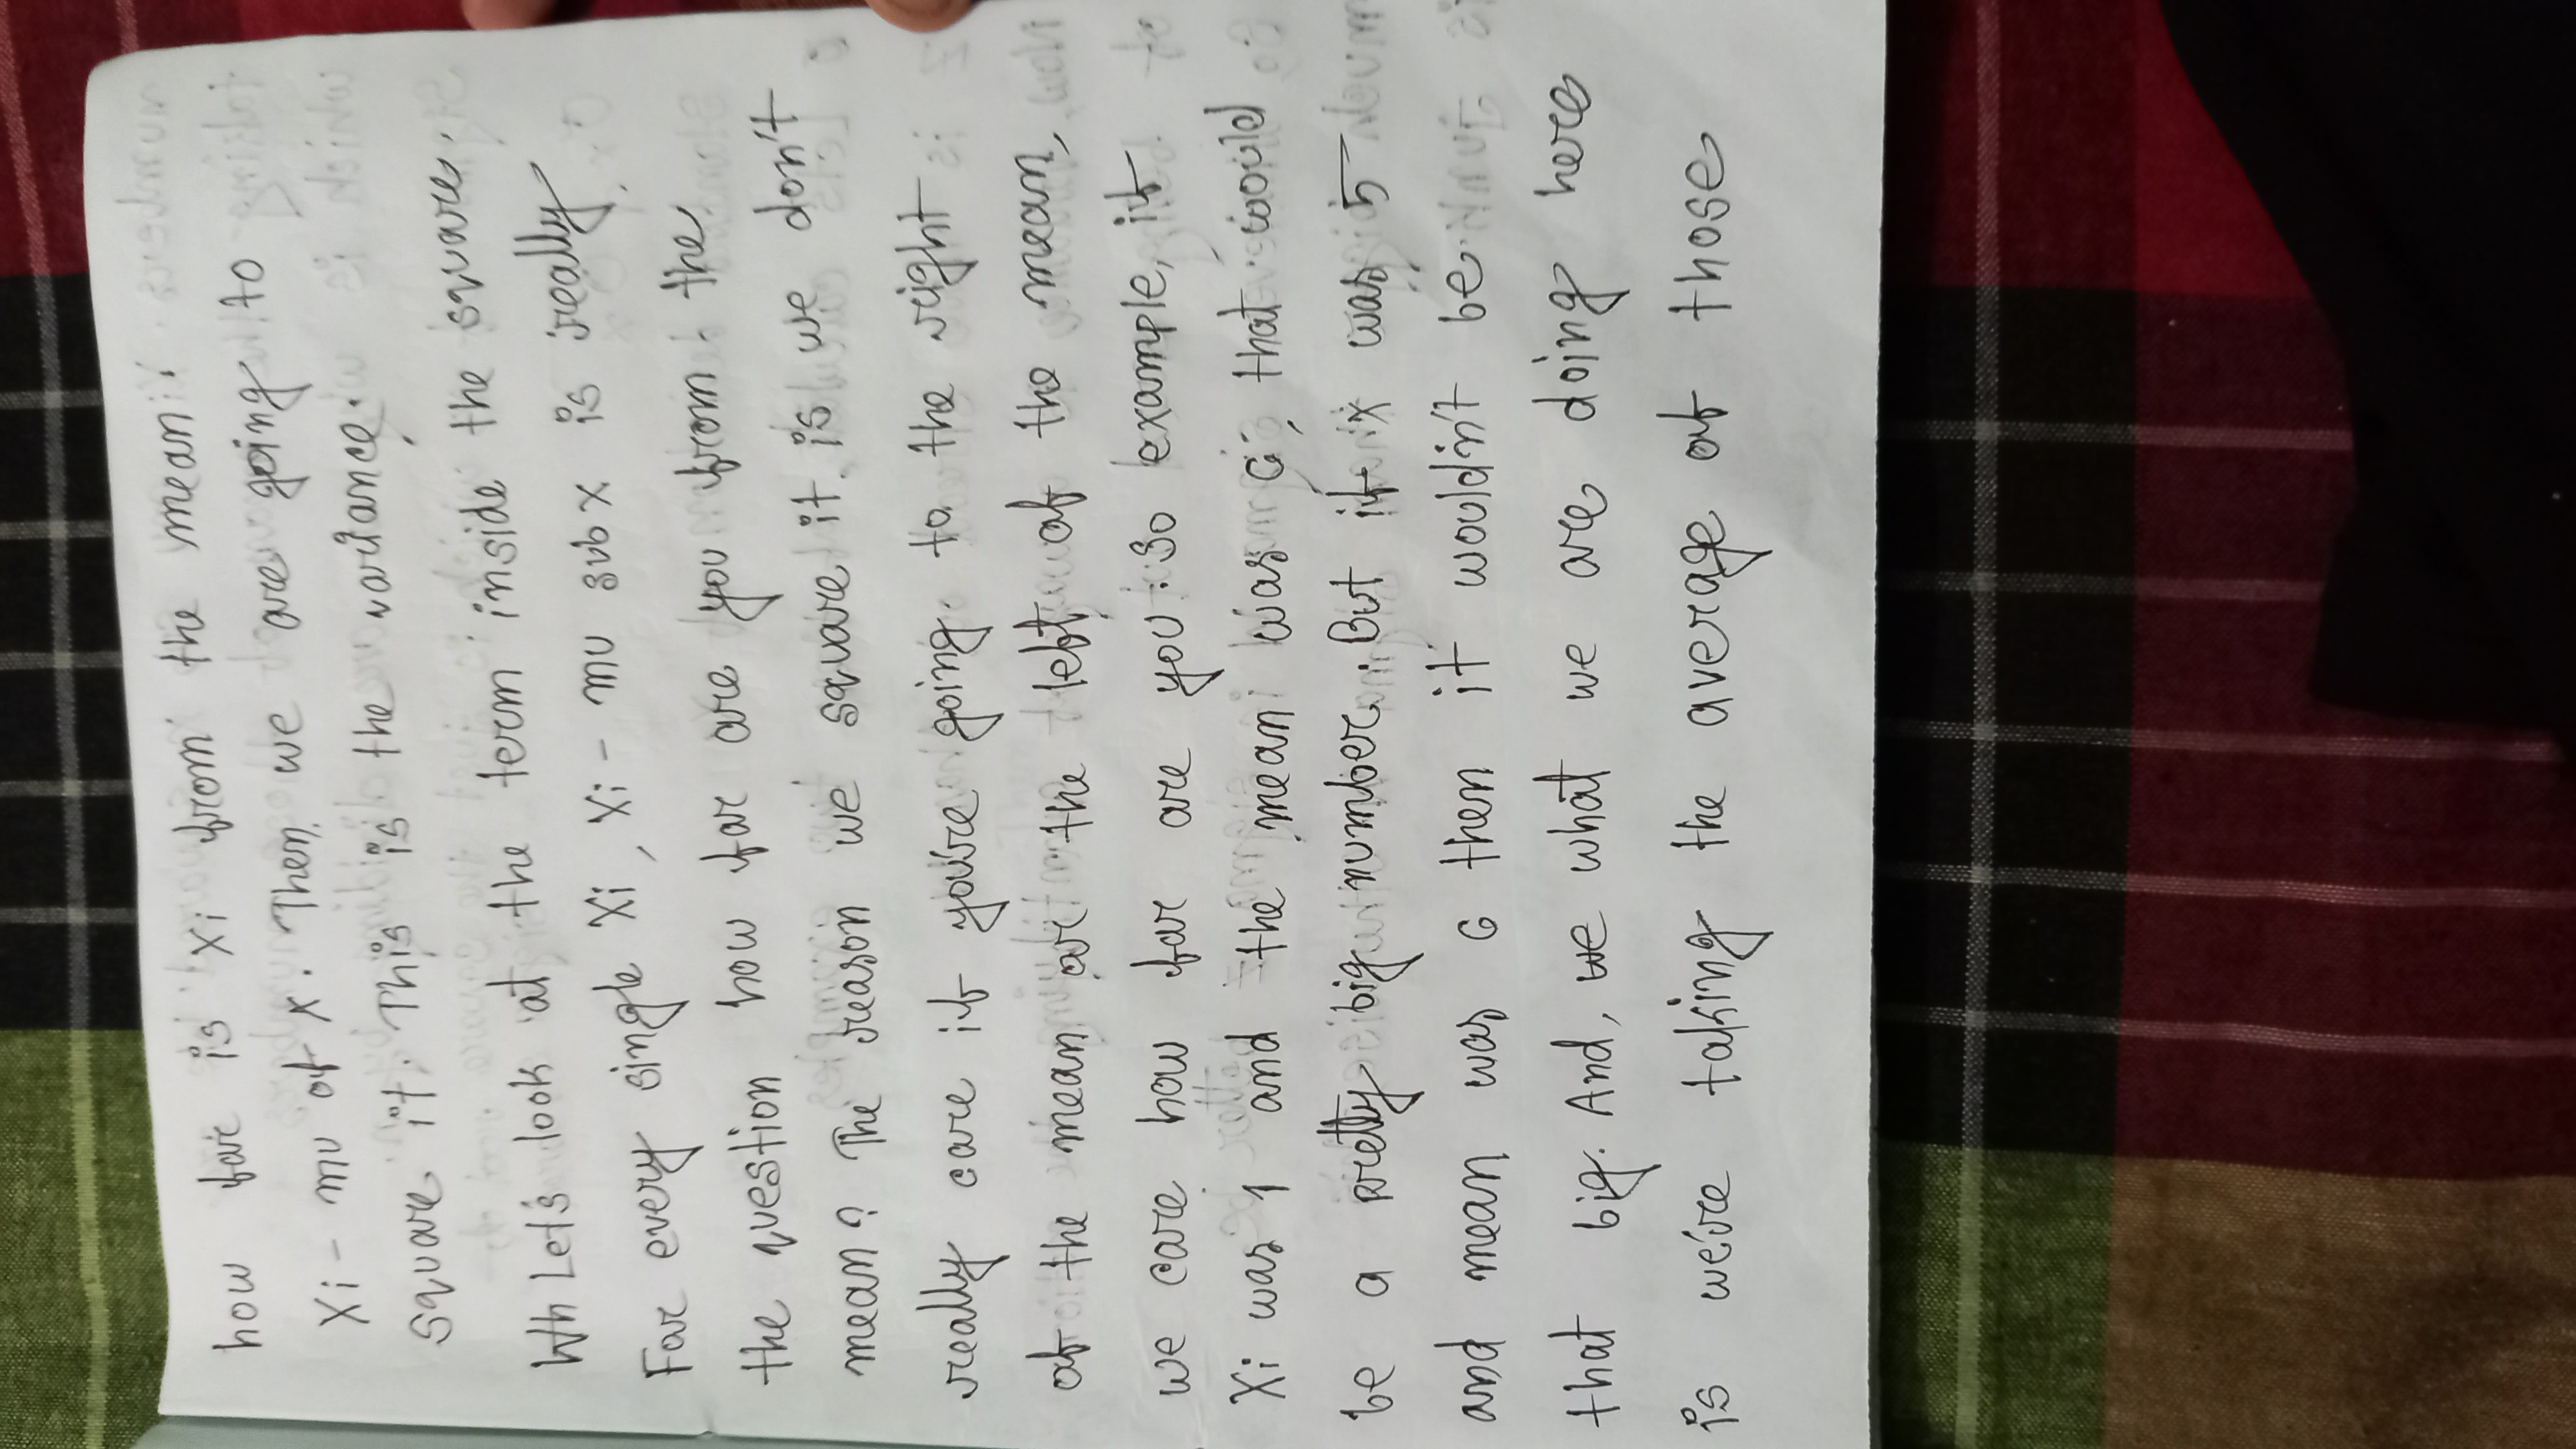 how far is Xi from the mean.
Xi - mu of X. Then we are going to
square it. This is the variance.
Wh Let's look at the term inside the square.
For every single Xi, Xi - mu sub X is really
the question how far are you from the
mean? The reason we square it is we don't
really care if you're going to the right
of the mean or the left of the mean,
we care how far are you. So example, if
Xi was 1 and the mean was 6, that would
be a pretty big number. But if X was 5
and mean was 6 then it wouldn't be
that big. And, we what we are doing here
is we're taking the average of those